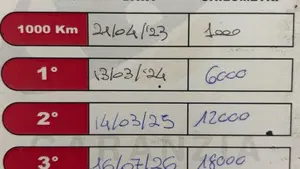 1000 Km 21/04/'23 1000
1° 13/03/'24 6000
2° 14/03/25 12000
GARANZIA
3° 16/07/26 18000